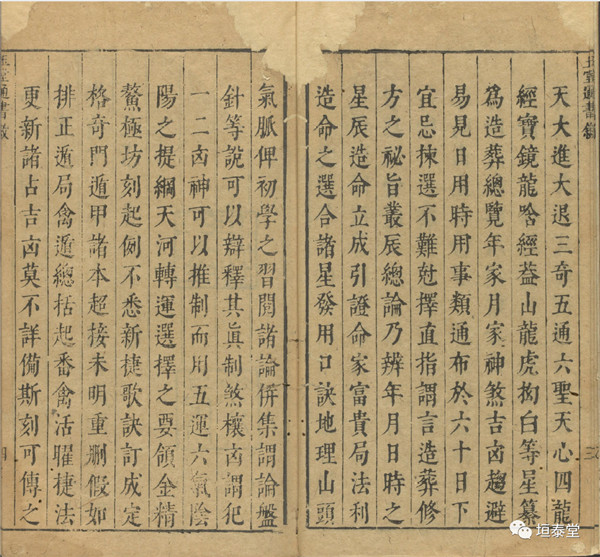 三
天大進大退三奇五通六聖天心四龍
經寶鏡龍啥經益山龍虎拘白等星纂
為造葬總覽年家月家神煞吉凶趨避
易見日用時用事類通布於六十日下
宜忌揀選不難尅擇直指謂言造葬修
方之祕旨叢辰總論乃辨年月日時之
星辰造命立成引證命家富貴局法利
造命之選合諸星發用口訣地理山頭
氣脈俾初學之習閱諸論併集謂論盤
針等說可以辯釋其眞制煞欀凶謂犯
一二凶神可以推制而用五運六氣陰
陽之提綱天河轉運選擇之要領金精
鰲極坊刻起例不悉新捷歌訣訂成定
格奇門遁甲諸本超接未明重刪假如
排正遁局禽遁總括起番禽活曜捷法
更新諸占吉凶莫不詳備斯刻可傳之
通書
垣泰堂